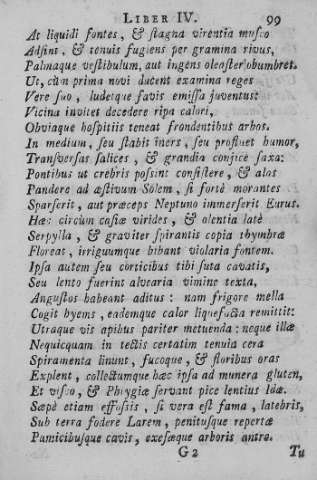 LIBER IV. 99
At liquidi fontes, & stagna virentia musco
Adsint, & tenuis fugiens per gramina rivus,
Palmaque vestibulum, aut ingens oleaster obumbret.
Ut, cùm prima novi ducent examina reges
Vere suo, ludetque favis emissa juventus:
Vicina invitet decedere ripa calori,
Obviaque hospitiis teneat frondentibus arbos.
In medium, seu stabit iners, seu profluet humor,
Transversas salices, & grandia conjice saxa:
Pontibus ut crebris possint consistere, & alas
Pandere ad æstivum Solem, si fortè morantes
Sparserit, aut præceps Neptuno immerserit Eurus.
Hæc circùm casiæ virides, & olentia latè
Serpylla, & graviter spirantis copia thymbræ
Floreat, irriguumque bibant violaria fontem.
Ipsa autem seu corticibus tibi suta cavatis,
Seu lento fuerint alvearia vimine texta,
Angustos habeant aditus: nam frigore mella
Cogit hyems, eademque calor liquefacta remittit:
Utraque vis apibus pariter metuenda: neque illæ
Nequicquam in tectis certatim tenuia cera
Spiramenta linunt, fucoque, & floribus oras
Explent, collectumque hæc ipsa ad munera gluten,
Et visco, & Phrygiæ servant pice lentius Idæ.
Sæpè etiam effossis, si vera est fama, latebris,
Sub terra fodere Larem, penitusque repertæ
Pumicibusque cavis, exesæque arboris antro.
G 2 Tu